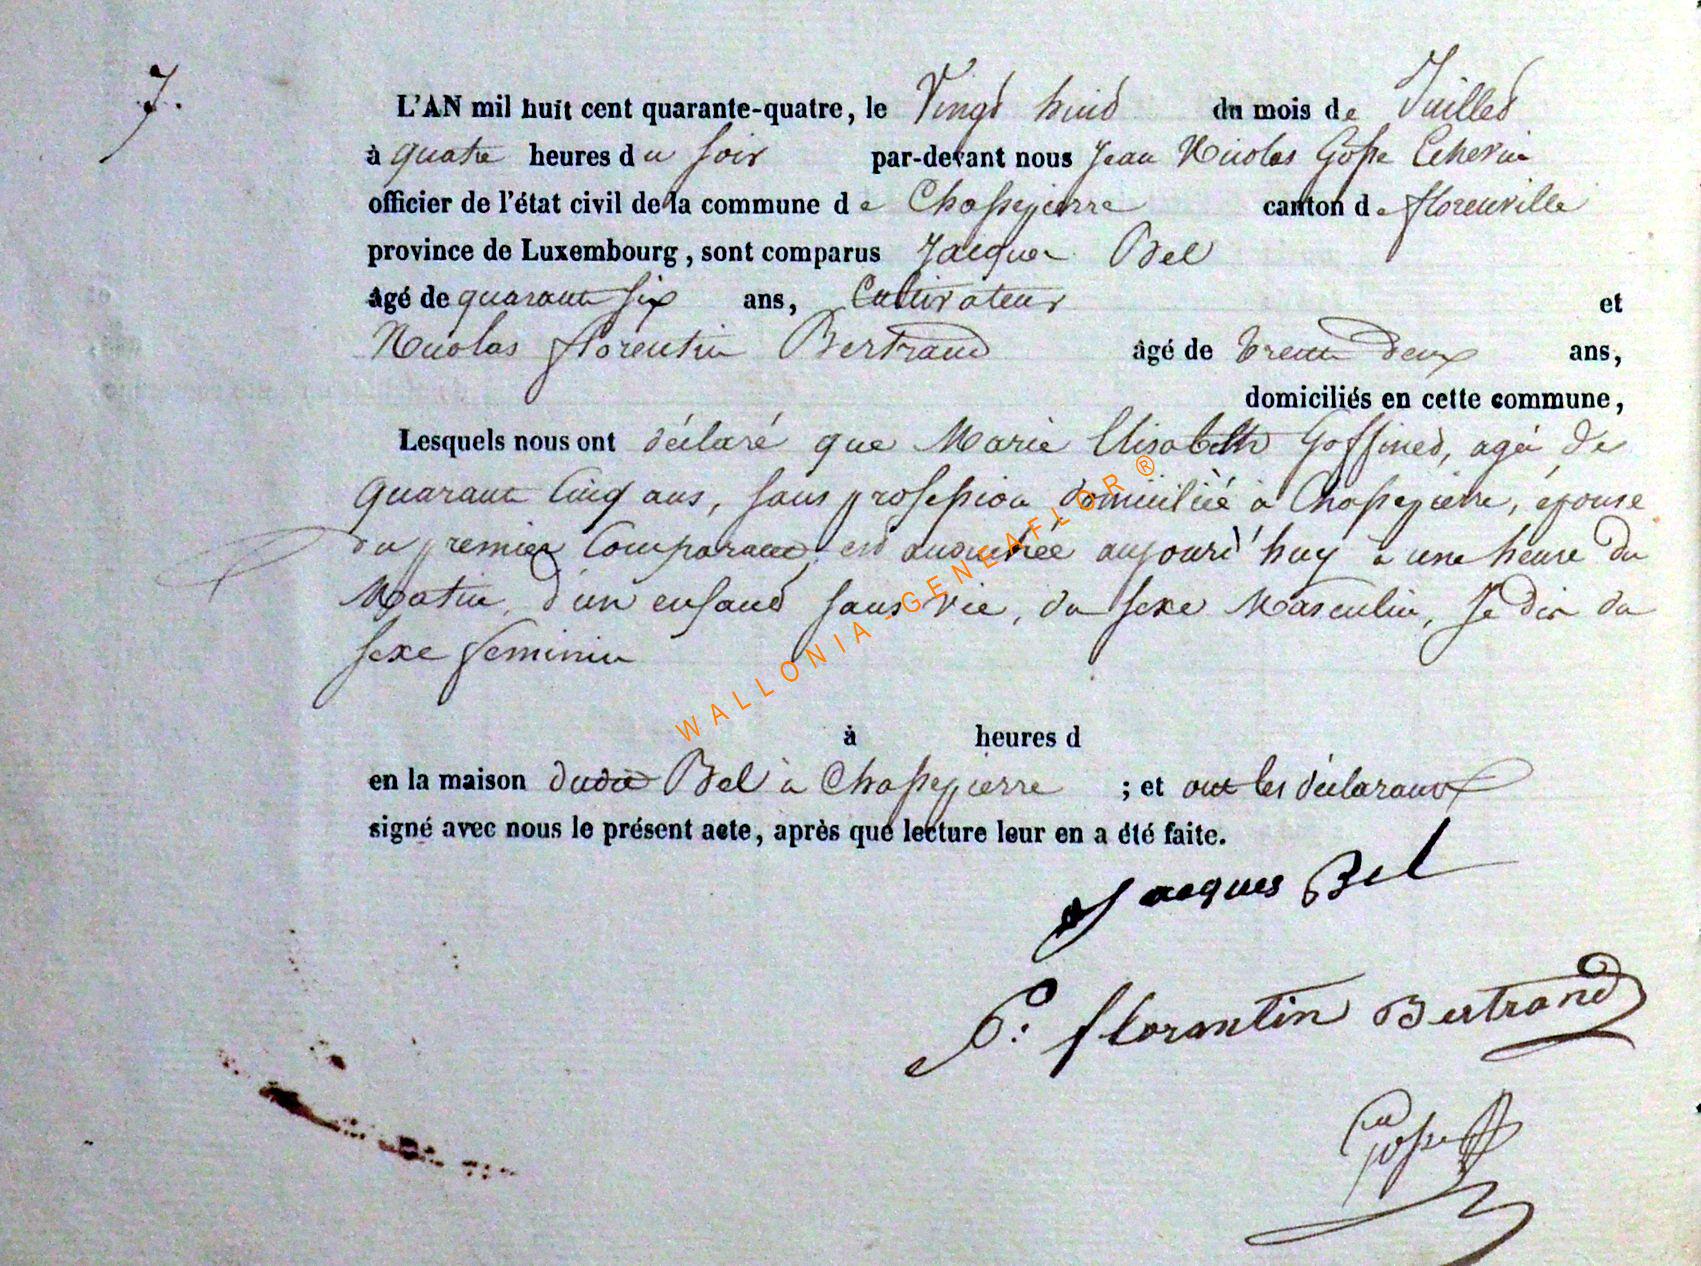 7.
L'AN mil huit cent quarante-quatre, le Vingt huit du mois de Juillet
à quatre heures du soir par-devant nous Jean Nicolas Gosse Echevin
officier de l'état civil de la commune de Chassepierre canton de florenville
province de Luxembourg, sont comparus Jacques Bel
âgé de quarante six ans, Cultivateur et
Nicolas florentin Bertrand âgé de trente deux ans,
domiciliés en cette commune,
Lesquels nous ont déclaré que Marie Elisabeth Goffinet, agée de
quarante Cinq ans, sans profession domiciliée à Chassepierre, épouse
du premier Comparant, est accouchée aujourd'huy à une heure du
Matin, d'un enfant sans vie, du sexe Masculin, Je dis du
sexe feminin
à heures d
en la maison dudit Bel à Chassepierre ; et ont les déclarants
signé avec nous le présent acte, après que lecture leur en a été faite.
Jacques Bel
florantin Bertrand
Gosse
WALLONIA-GENEAFLOR ®